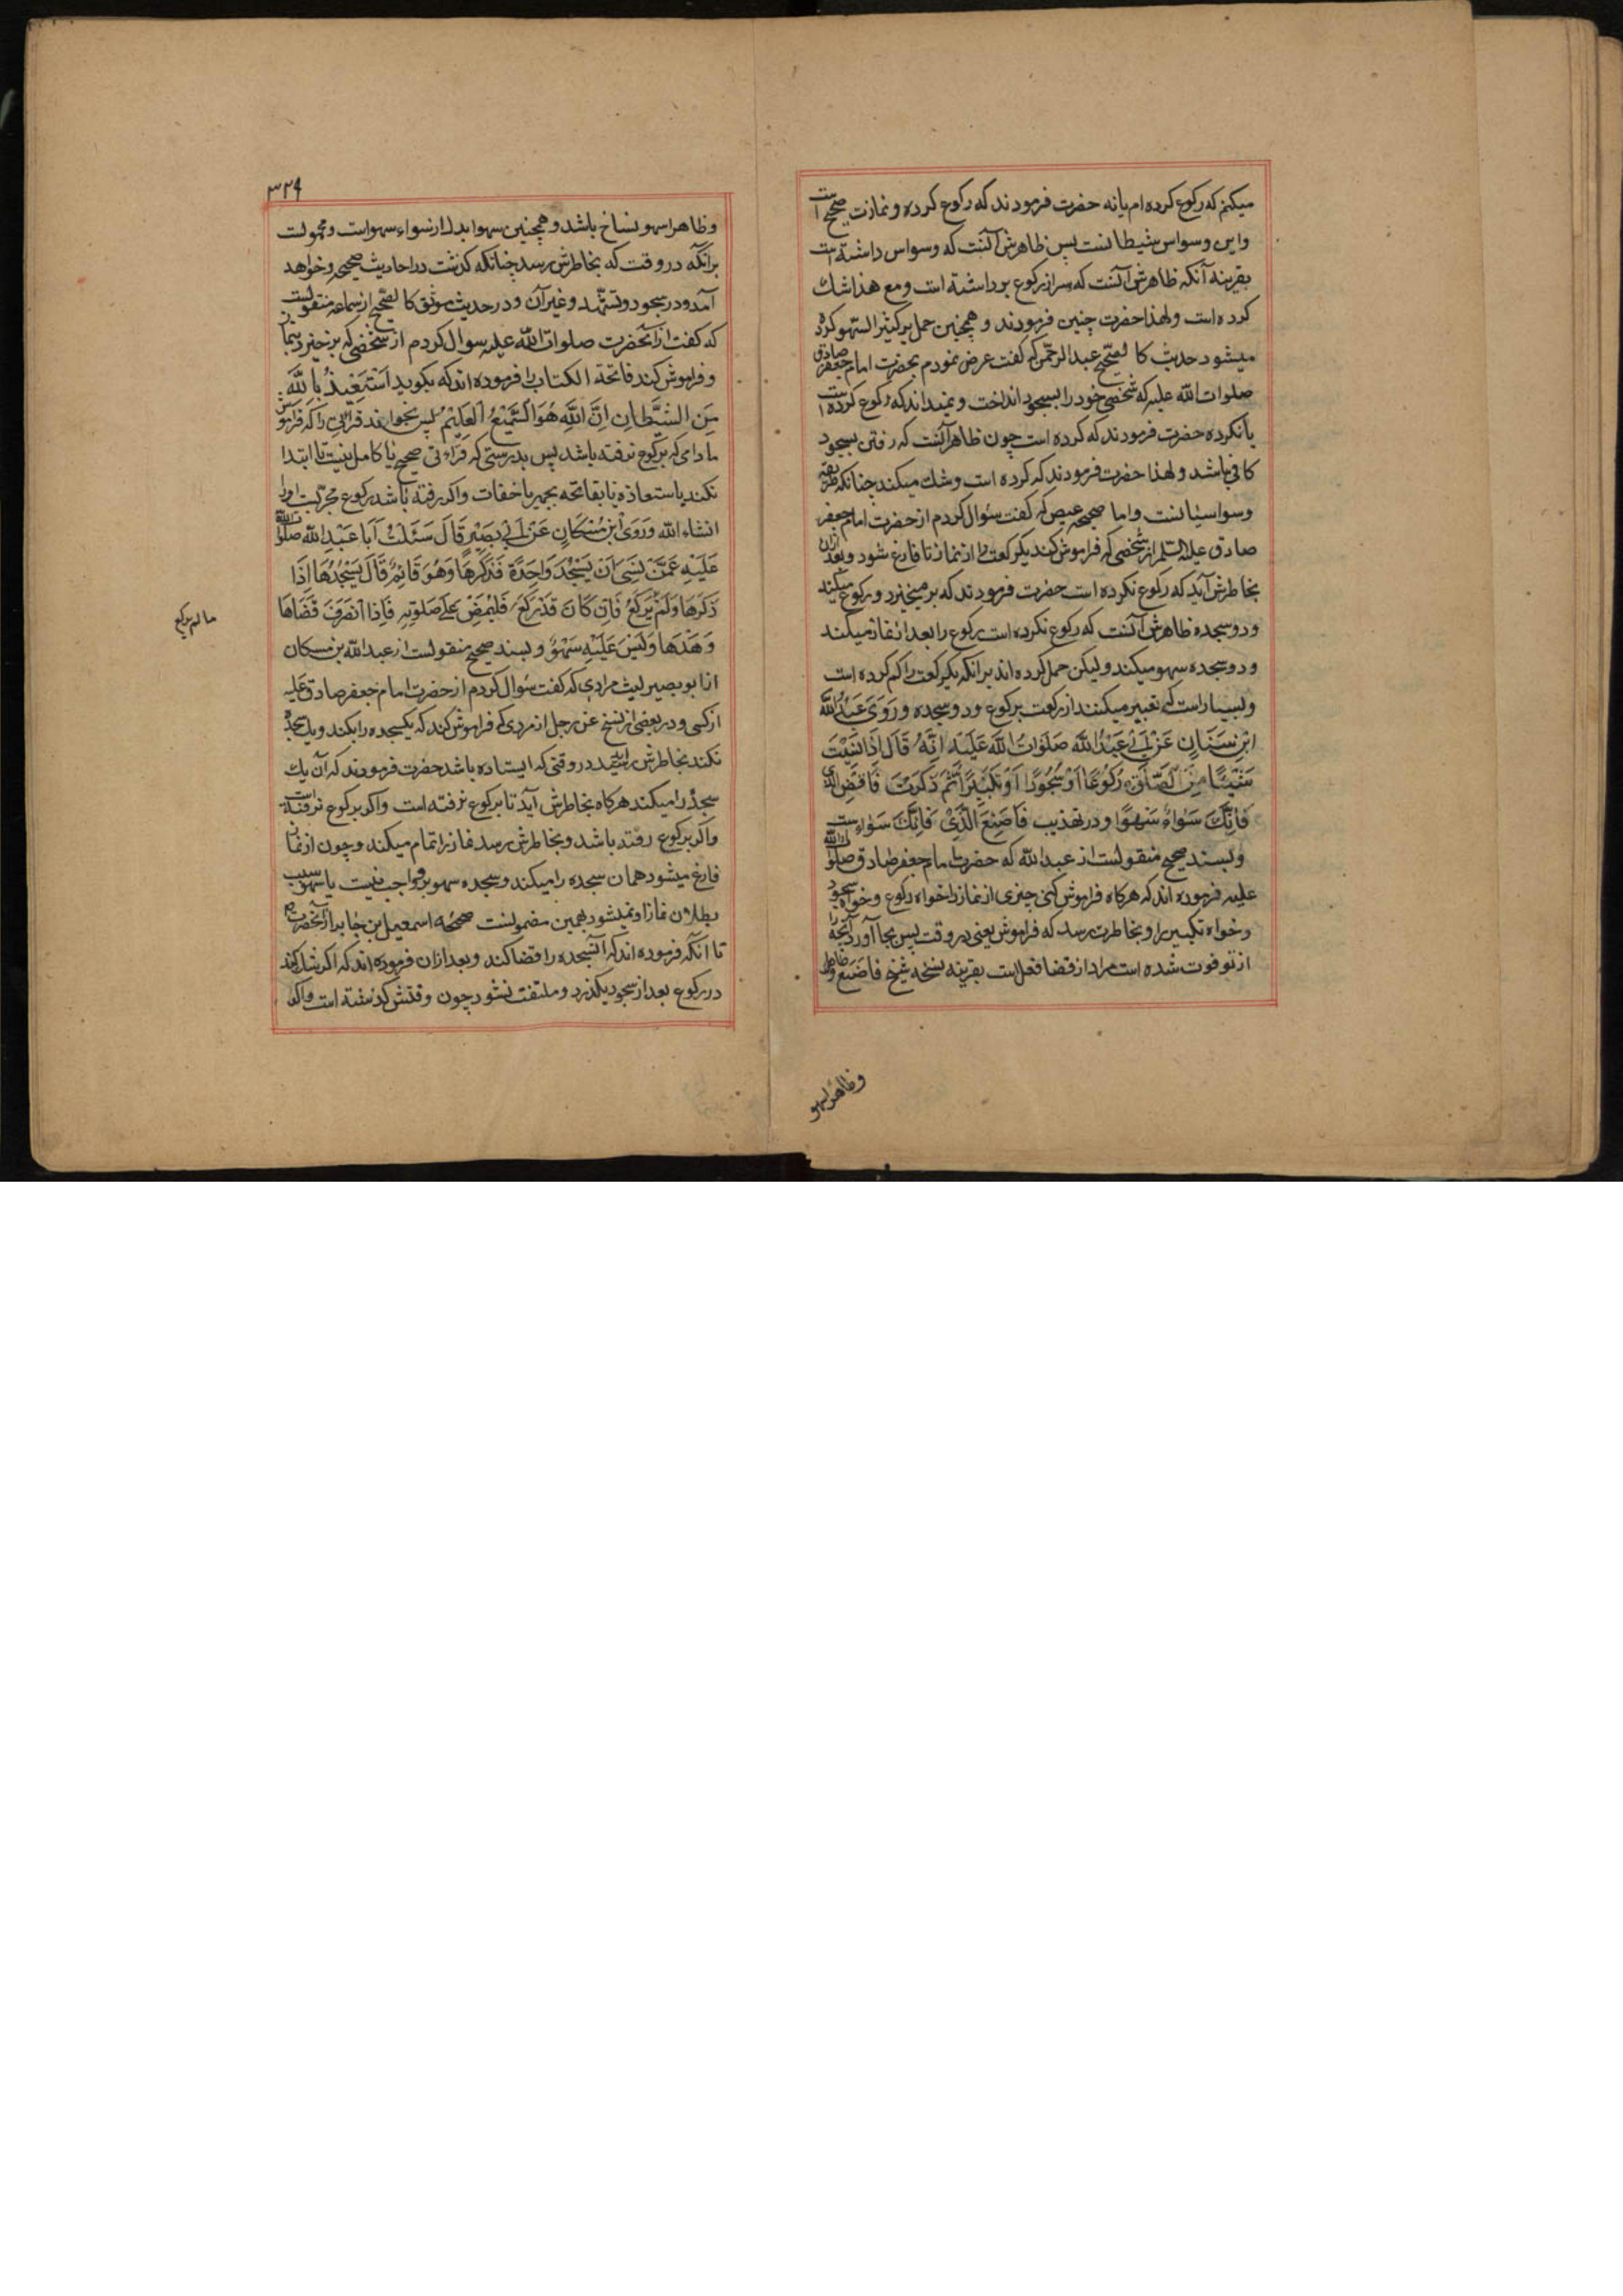 میکنم که رکوع کرده ام یا نه حضرت فرمودند که رکوع کرده و نمازت صحیح است
و این وسواس شیطانست پس ظاهرش آنست که وسواس داشته است
بقرینه آنکه ظاهرش آنست که سر از رکوع برداشته است و مع هذا شك
کرده است و لهذا حضرت چنین فرمودند و همچنین حمل بر کثیر السهو کرده
میشود حدیث کالصحیح عبد الرحمن که گفت عرض نمودم بحضرت امام جعفر صادق
صلوات الله علیه که شخصی خود را بسجود انداخت و نمیداند که رکوع کرده است
یا نکرده حضرت فرمودند که کرده است چون ظاهر آنست که رفتن بسجود
کافی باشد و لهذا حضرت فرمودند که کرده است و شك میکند چنانکه طریقه
وسواسیانست و اما صحیحه عیص که گفت سؤال کردم از حضرت امام جعفر
صادق علیه السلم از شخصی که فراموش کند یکرکعت را از نماز تا فارغ شود و بعد ازان
بخاطرش آید که رکوع نکرده است حضرت فرمودند که بر میخیزد و رکوع میکند
و دو سجده ظاهرش آنست که رکوع نکرده است رکوع را بعد از نماز میکند
و دو سجده سهو میکند ولیکن حمل کرده اند بر انکه یکرکعت را کم کرده است
و بسیار است که تعبیر میکنند از رکعت برکوع و دو سجده وَرَوَى عَبْدُ اللّٰه
ابْنِ سَنَانٍ عَنْ اَبِي عَبْدُ اللّٰه صَلَوَاتُ اللّٰه عَلَيْهِ اِنَّهُ قَالَ اِذَا نَسِيْتَ
شَيْئًا مِنَ الصَّلٰوةِ رُكُوعًا اَوْ سُجُودًا اَوْ تَكْبِيْرًا ثُمَّ ذَكَرْتَ فَاقْضِ الَّذِي
فَاتَكَ سَوَاءٌ سَهْوًا و در تهذیب فَاصْنَعَ الَّذِيْ فَاتَكَ سَوَاء است
و بسند صحیح منقولست از عبد الله که حضرت امام جعفر صادق صلوات الله
علیه فرموده اند که هرکاه فراموش کنی چیزی از نماز را خواه رکوع و خواه سجود
و خواه تکبیر را و بخاطرت رسد که فراموش یعنی در وقت پس بجا آور آنچه را
از تو فوت شده است مراد از قضا فعل است بقرینه نسخه شیخ فاصنع
وظاهرا سهو
۳۲۹
وظاهرا سهو نساخ باشد و همچنین سهوا بدل از سواء سهو است و محمولست
بر آنکه در وقت که بخاطرش رسد چنانکه گذشت در احادیث صحیحه و خواهد
آمد و در سجود و تشهد و غیر آن و در حدیث موثق کالصحیح از سماعه منقولست
که گفت از آنحضرت صلوات الله علیه سوال کردم از شخصی که برخیزد بنماز
و فراموش کند فاتحة الکتاب را فرموده اند که بکوید اَسْتَعِيْذُ بِاللّٰهِ
مِنَ الشَّيْطَانِ اِنَّ اللّٰهَ هُوَ السَّمِيْعُ الْعَلِيْمُ پس بخواند قرائتی را که فراموش
مادامی که برکوع نرفته باشد پس بدرستی که قراءتی صحیح یا کامل نیست تا ابتدا
نکند باستعاذه یا بفاتحه بجهر یا خفات و اکر رفته باشد رکوع مجزیست او را
انشاء الله وَرَوَى ابْنُ مُسْكَانٍ عَنْ اَبِي بَصِيْرٍ قَالَ سَئَلْتُ اَبَا عَبْدِ اللّٰه صلوات الله
عَلَيْهِ عَمَّنْ نَسِيَ اَنْ يَسْجُدَ وَاحِدَةً فَذَكَرَهَا وَهُوَ قَائِمٌ قَالَ يَسْجُدُهَا اِذَا
ذَكَرَهَا وَلَمْ يَرْكَعْ فَاِنْ كَانَ قَدْ رَكَعَ فَلْيَمْضِ عَلَى صَلٰوتِهِ فَاِذَا انْصَرَفَ قَضَاهَا
ما لم یرکع
وَهَدَهَا وَلَيْسَ عَلَيْهِ سَهْوٌ و بسند صحیح منقولست از عبد الله بن مسکان
از ابو بصیر لیث مرادی که گفت سؤال کردم از حضرت امام جعفر صادق علیه
از کسی و در بعضی از نسخ عن رجل از مردی که فراموش کند که یکسجده را بکند و یك سجده
نکند بخاطرش رسید در وقتی که ایستاده باشد حضرت فرمودند که آن یك
سجده را میکند هرکاه بخاطرش آید تا برکوع نرفته است و اکر برکوع نرفته است
و اکر برکوع رفته باشد و بخاطرش رسد نماز را تمام میکند و چون از نماز
فارغ میشود همان سجده را میکند و سجده سهو برو واجب نیست یا سهو سبب
بطلان نماز او نمیشود بهمین مضمونست صحیحه اسمعیل بن جابر از آنحضرت
تا آنکه فرموده اند که آن سجده را قضا کند و بعد ازان فرموده اند که اکر شك کند
در رکوع بعد از سجود بکذرد و ملتفت نشود چون وقتش گذشته است و اکر